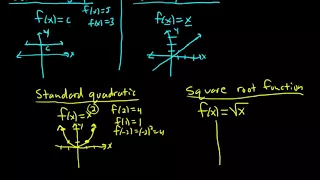 f(x)=c
f(x)=5
f(x)=3
y
x
f(x)=x
y
x
Standard quadratic
f(x)=x²
f(2)=4
f(1)=1
f(-2)=(-2)²=4
y
x
Square root function
f(x)=√x